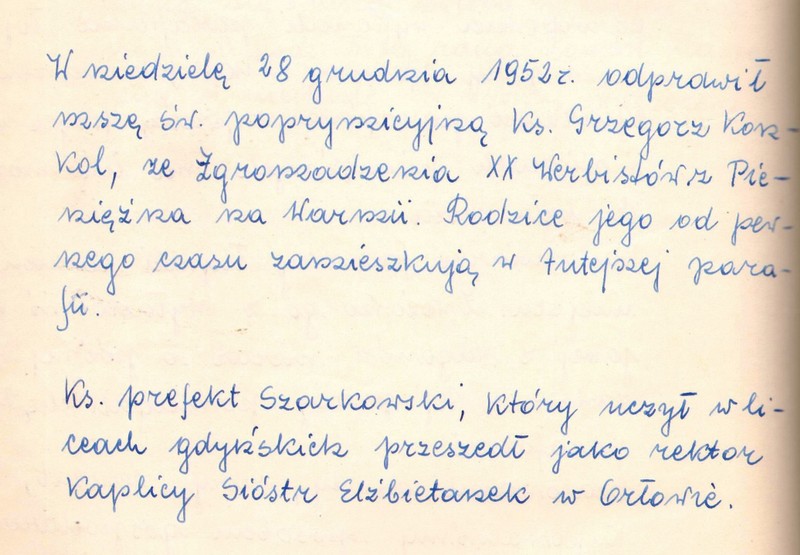 W niedzielę 28 grudnia 1952 r. odprawił
mszę św. poprymicyjną Ks. Grzegorz Kon-
kol, ze Zgromadzenia XX Werbistów z Pie-
niężna na Warmii. Rodzice jego od pew-
nego czasu zamieszkują w tutejszej para-
fii.
Ks. prefekt Szarkowski, który uczył w li-
ceach gdyńskich przeszedł jako rektor
Kaplicy Sióstr Elżbietanek w Orłowie.